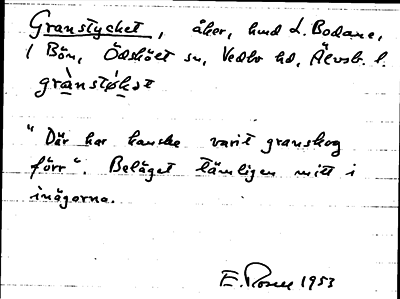 Granstycket, åker, hmd L. Bodane,
1 Bön, Ödskölt sn, Vedbo hd, Älvsb. l.
grànstỏkət
"Där har kanske varit granskog
förr". Beläget tämligen mitt i
inägorna.
E. Rosell 1953